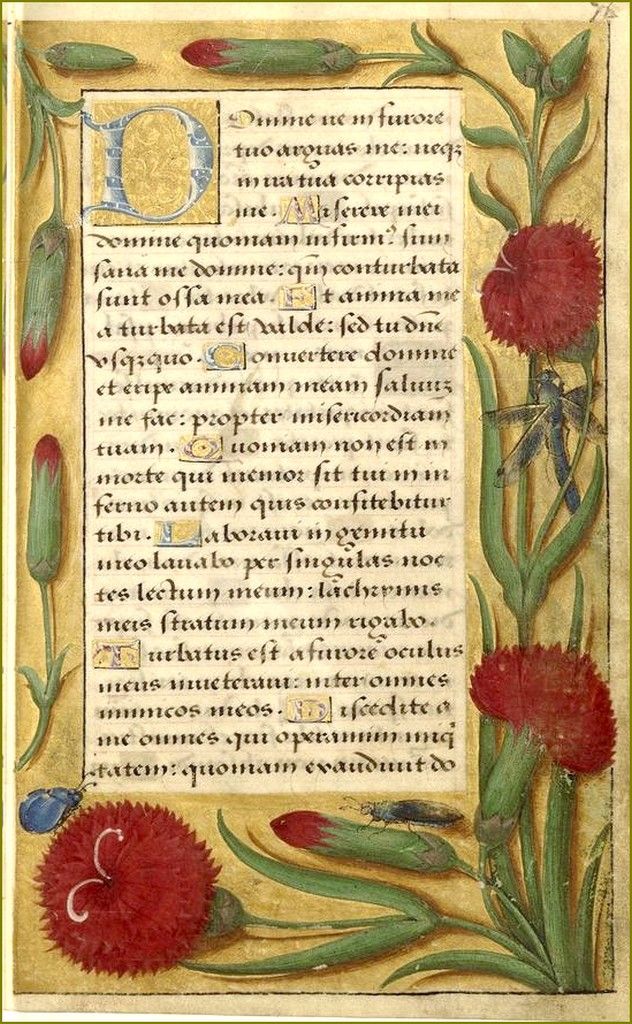 Domine ne in furore
tuo arguas me: neqz
in ira tua corripias
me. Miserere mei
domine quoniam infirmꝰ sum
sana me domine: qm̄ conturbata
sunt ossa mea. Et anima me
a turbata est valde: sed tu dn̄e
vsqzquo. Conuertere domine
et eripe animam meam saluuz
me fac: propter misericordiam
tuam. Quoniam non est in
morte qui memor sit tui in in
ferno autem quis confitebitur
tibi. Laboraui in gemitu
meo lauabo per singulas noc
tes lectum meum: lachrymis
meis stratum meum rigabo.
Turbatus est a furore oculus
meus inueteraui: inter omnes
inimicos meos. Discedite a
me omnes qui operamini iniq̄
tatem: quoniam exaudiuit do